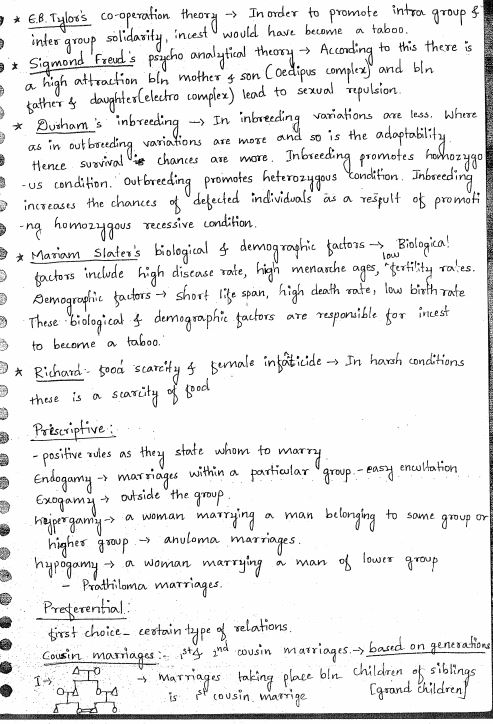 * E.B. Tylor's co-operation theory → In order to promote intra group &
inter group solidarity, incest would have become a taboo.
* Sigmond Freud's psycho analytical theory → According to this there is
a high attraction b/n mother & son (Oedipus complex) and b/n
father & daughter (electro complex) lead to sexual repulsion.
* Durham's inbreeding → In inbreeding variations are less. Where
as in outbreeding variations are more and so is the adaptability.
Hence survival chances are more. Inbreeding promotes homozygo
-us condition. Outbreeding promotes heterozygous condition. Inbreeding
increases the chances of defected individuals as a result of promoti
-ng homozygous recessive condition.
* Mariam Slater's biological & demographic factors → Biological
factors include high disease rate, high menarche ages, low fertility rates.
Demographic factors → short life span, high death rate, low birth rate
These biological & demographic factors are responsible for incest
to become a taboo.
* Richard - food scarcity & female infaticide → In harsh conditions
these is a scarcity of food
Prescriptive:
- positive rules as they state whom to marry
Endogamy → marriages within a particular group. - easy encultation
Exogamy → outside the group.
hypergamy → a woman marrying a man belonging to same group or
higher group → anuloma marriages.
hypogamy → a woman marrying a man of lower group
- Prathiloma marriages.
Preferential:
first choice - certain type of relations.
Cousin marriages:- 1st & 2nd cousin marriages. → based on generations
I → → marriages taking place b/n children of siblings
is 1st cousin marrige [grand children]